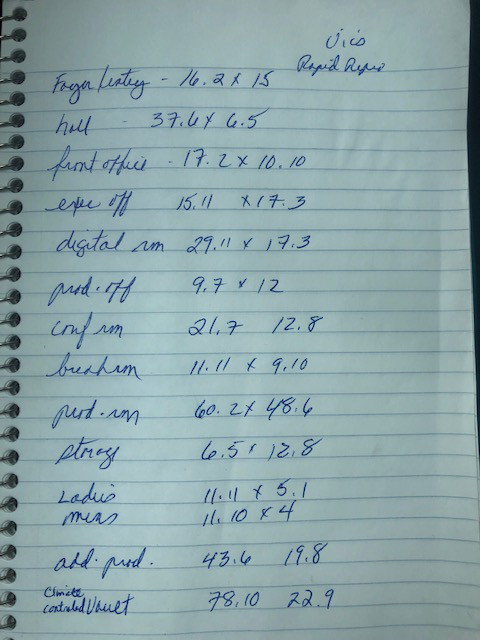 Vic's
Rapid Repro
Foyer/entry - 16.2 x 15
hall - 37.6 x 6.5
front office - 17.2 x 10.10
exec off 15.11 x 17.3
digital rm 29.11 x 17.3
prod. off 9.7 x 12
conf rm 21.7 12.8
break rm 11.11 x 9.10
prod. rm 60.2 x 48.6
storag 6.5 x 12.8
Ladies 11.11 x 5.1
mens 11.10 x 4
add. prod. 43.6 19.8
Climate
controled Vault 78.10 22.9